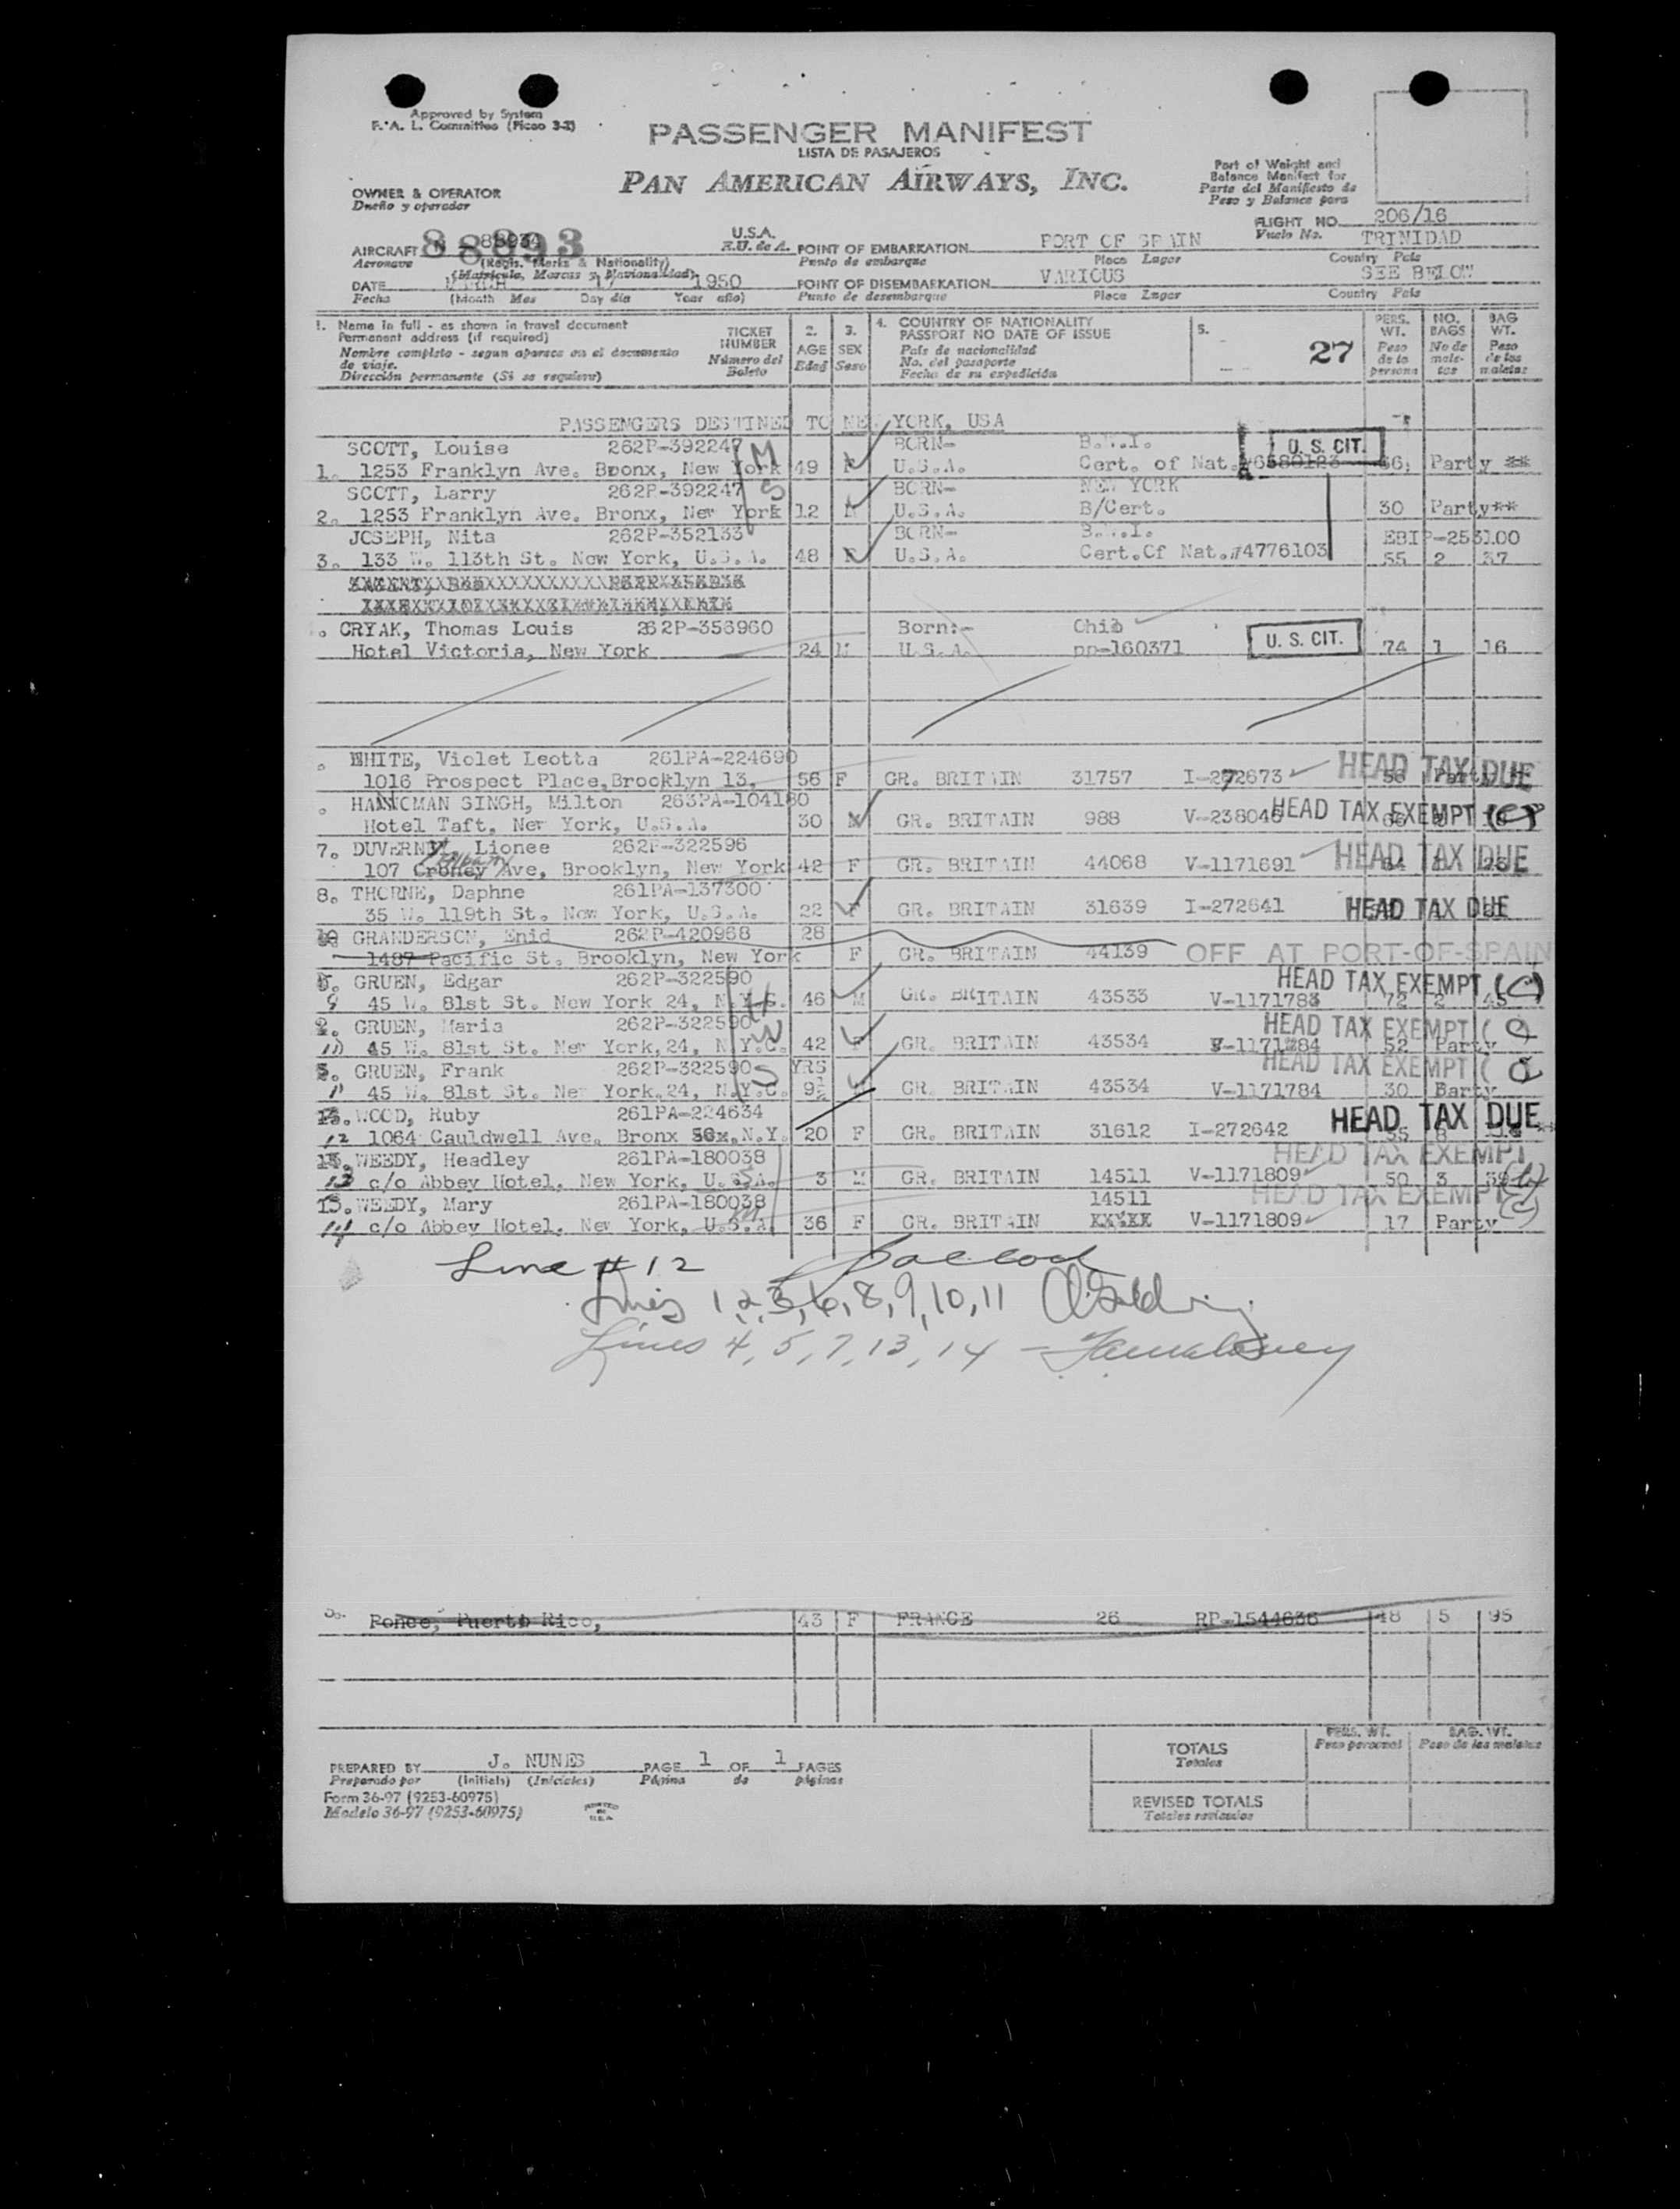 Approved by System
F. A. L. Committee (Ficao 3-3)
PASSENGER MANIFEST
LISTA DE PASAJEROS
PAN AMERICAN AIRWAYS, INC.
Part of Weight and
Balance Manifest for
Parte del Manifiesto de
Peso y Balance para
OWNER & OPERATOR
Dueño y operador
FLIGHT NO. 206/16
Vuelo No.
AIRCRAFT N - 88934 88893
Aeronave (Regis. Marks & Nationality)
(Matricula, Marcas y Nacionalidad)
U.S.A.
E.U. de A.
POINT OF EMBARKATION PORT OF SPAIN TRINIDAD
Punto de embarque Place Lugar Country Pais
DATE MARCH 17 1950
Fecha (Month Mes Day dia Year año)
POINT OF DISEMBARKATION VARIOUS SEE BELOW
Punto de desembarque Place Lugar Country Pais
1. Name in full - as shown in travel document
Permanent address (if required)
Nombre completo - segun aparece en el documento
de viaje.
Dirección permanente (Si se requiere)
TICKET
NUMBER
Número del
Boleto
2.
AGE
Edad
3.
SEX
Sexo
4. COUNTRY OF NATIONALITY
PASSPORT NO DATE OF ISSUE
Pais de nacionalidad
No. del pasaporte
Fecha de su expedición
5.
27
PERS. WT.
Peso de la persona
NO. BAGS
No de maletas
BAG WT.
Peso de las maletas
PASSENGERS DESTINED TO NEW YORK, USA
SCOTT, Louise 262P-392247 BORN- B.W.I. U. S. CIT.
1. 1253 Franklyn Ave. Bronx, New York 49 F U.S.A. Cert. of Nat.#6580123 66 Party **
SCOTT, Larry 262P-392247 BORN- NEW YORK
2. 1253 Franklyn Ave. Bronx, New York 12 M U.S.A. B/Cert. 30 Party**
JOSEPH, Nita 262P-352133 BORN- B.W.I. EBIP-2531.00
3. 133 W. 113th St. New York, U.S.A. 48 F U.S.A. Cert.Of Nat.#4776103 55 2 37
. CRYAK, Thomas Louis 262P-356960 Born:- Ohio U. S. CIT.
Hotel Victoria, New York 24 M U.S.A. pp-160371 74 1 16
. WHITE, Violet Leotta 261PA-224690
1016 Prospect Place,Brooklyn 13, 56 F GR. BRITAIN 31757 I-272673 HEAD TAX DUE
. HANOOMAN SINGH, Milton 263PA-104180
Hotel Taft, New York, U.S.A. 30 M GR. BRITAIN 988 V-238046 HEAD TAX EXEMPT (C)
7. DUVERNEY, Lionee 262P-322596
107 Croney Albany Ave, Brooklyn, New York 42 F GR. BRITAIN 44068 V-1171691 HEAD TAX DUE
8. THORNE, Daphne 261PA-137300
35 W. 119th St. New York, U.S.A. 22 F GR. BRITAIN 31639 I-272641 HEAD TAX DUE
GRANDERSON, Enid 262P-420968 28
1487 Pacific St. Brooklyn, New York F GR. BRITAIN 44139 OFF AT PORT-OF-SPAIN
GRUEN, Edgar 262P-322590 HEAD TAX EXEMPT (C)
9 45 W. 81st St. New York 24, N.Y.C. 46 M GR. BRITAIN 43533 V-1171783 72 2 45
GRUEN, Maria 262P-322590 HEAD TAX EXEMPT (C)
10 45 W. 81st St. New York,24, N.Y.C. 42 F GR. BRITAIN 43534 V-1171784 52 Party
GRUEN, Frank 262P-322590 YRS HEAD TAX EXEMPT (C)
11 45 W. 81st St. New York,24, N.Y.C. 9½ M GR. BRITAIN 43534 V-1171784 30 Party
WOOD, Ruby 261PA-224634
12 1064 Cauldwell Ave. Bronx 56x,N.Y. 20 F GR. BRITAIN 31612 I-272642 HEAD TAX DUE
WEEDY, Headley 261PA-180038 HEAD TAX EXEMPT
13 c/o Abbey Hotel, New York, U.S.A. 3 M GR. BRITAIN 14511 V-1171809 50 3 39
WEEDY, Mary 261PA-180038 14511 HEAD TAX EXEMPT (C)
14 c/o Abbey Hotel, New York, U.S.A. 36 F GR. BRITAIN XXXXX V-1171809 17 Party
Line # 12
Lines 1,2,3,6,8,9,10,11
Lines 4, 5, 7, 13, 14 -
Ponce, Puerto Rico, 43 F FRANCE 26 RP-1544636 48 5 95
PREPARED BY J. NUNES PAGE 1 OF 1 PAGES
Preparado por (Initials) (Iniciales) Página de páginas
Form 36-97 (9253-60975)
Modelo 36-97 (9253-60975)
PRINTED IN U.S.A.
PERS. WT.
Peso personal
BAG. WT.
Peso de las maletas
TOTALS
Totales
REVISED TOTALS
Totales revisados